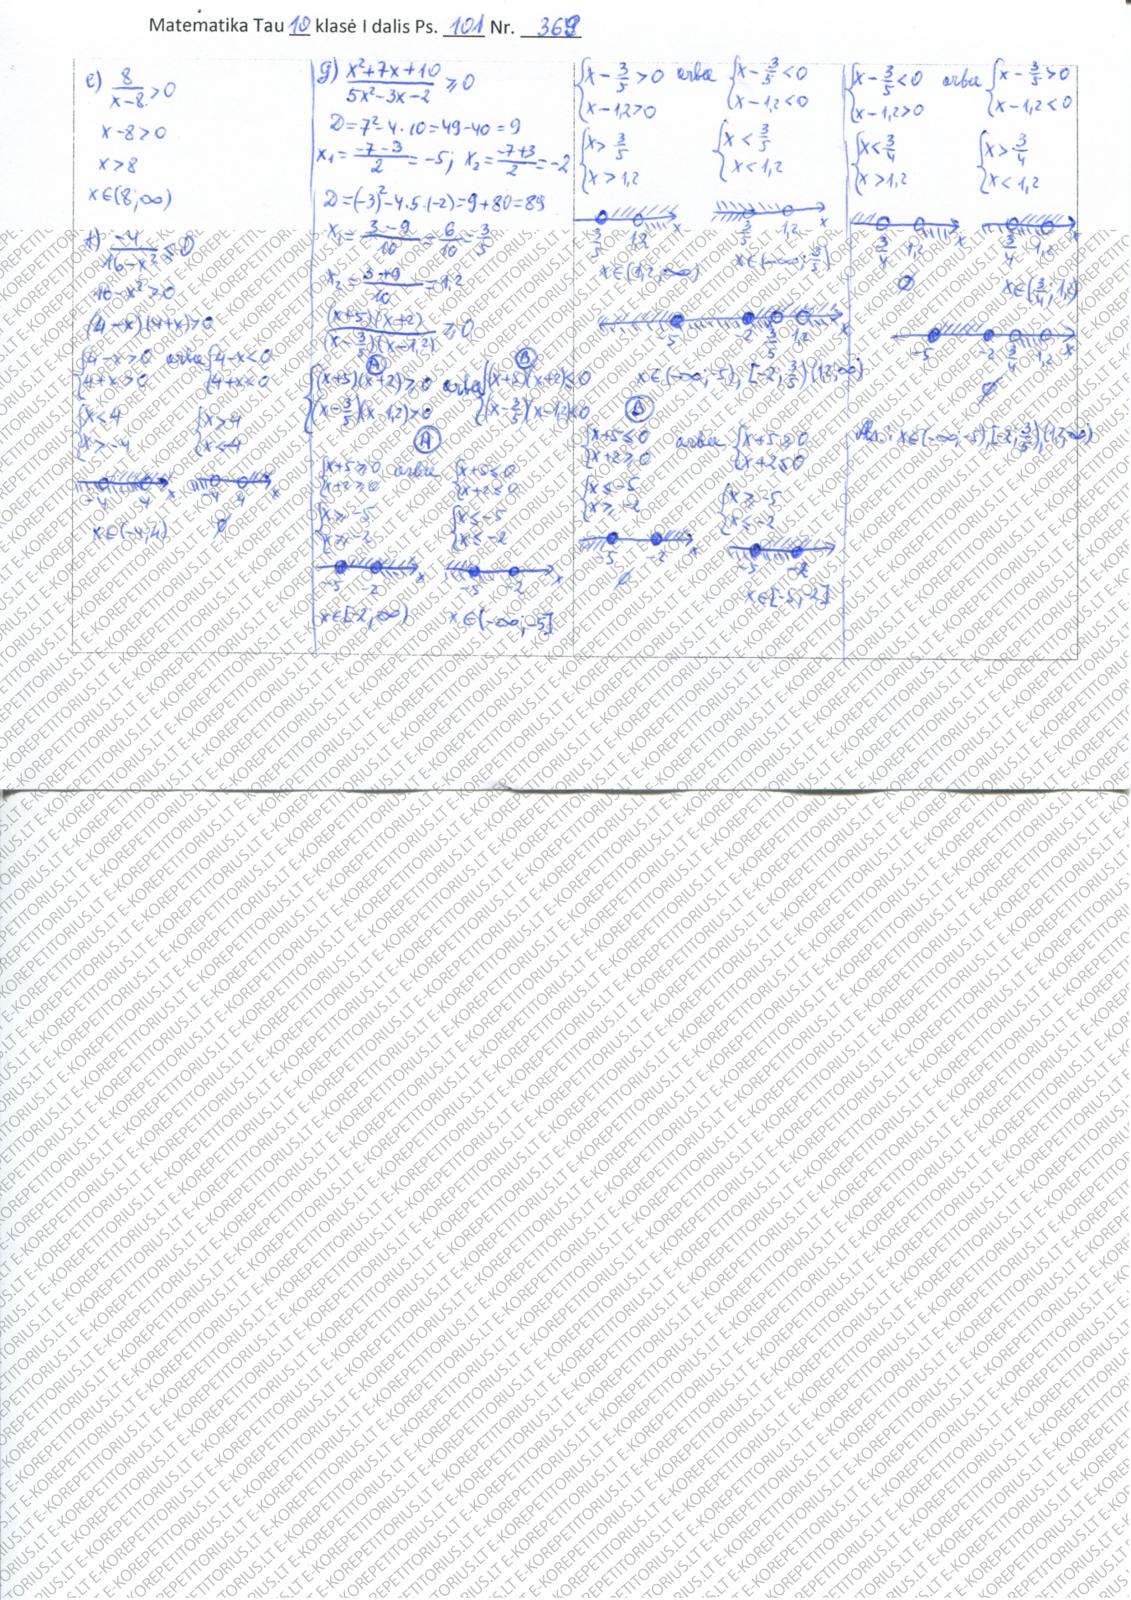 Matematika Tau 10 klasė I dalis Ps. 101 Nr. 369
e) 8/(x-8) > 0
x-8>0
x>8
x∈(8;∞)
f) -4/(16-x²) ≤ 0
16-x²>0
(4-x)(4+x)>0
{4-x>0 arba {4-x<0
{4+x>0 {4+x<0
{x<4 {x>4
{x>-4 {x<-4
-4 4 x -4 4 x
x∈(-4;4) ∅
g) (x²+7x+10)/(5x²-3x-2) ≥ 0
D=7²-4·10=49-40=9
x₁=(-7-3)/2=-5; x₂=(-7+3)/2=-2
D=(-3)²-4·5·(-2)=9+80=89
x₁=(3-9)/10=6/10=3/5
x₂=(3+9)/10=1,2
(x+5)(x+2)/((x-3/5)(x-1,2)) ≥ 0
A B
{(x+5)(x+2)≥0 arba {(x+5)(x+2)≤0
{(x-3/5)(x-1,2)>0 {(x-3/5)(x-1,2)<0
A
{x+5≥0 arba {x+5≤0
{x+2≥0 {x+2≤0
{x≥-5 {x≤-5
{x≥-2 {x≤-2
-5 -2 x -5 -2 x
x∈[-2;∞) x∈(-∞;-5]
{x-3/5>0 arba {x-3/5<0
{x-1,2>0 {x-1,2<0
{x>3/5 {x<3/5
{x>1,2 {x<1,2
3/5 1,2 x 3/5 1,2 x
x∈(1,2;∞) x∈(-∞;3/5)
-5 -2 3/5 1,2 x
x∈(-∞;-5),[-2;3/5)(1,2;∞)
B
{x+5≤0 arba {x+5≥0
{x+2≥0 {x+2≤0
{x≤-5 {x≥-5
{x≥-2 {x≤-2
-5 -2 x -5 -2 x
∅ x∈[-5;-2]
{x-3/5<0 arba {x-3/5>0
{x-1,2>0 {x-1,2<0
{x<3/4 {x>3/4
{x>1,2 {x<1,2
3/4 1,2 x 3/4 1,2 x
∅ x∈(3/4;1,2)
-5 -2 3/4 1,2 x
∅
Ats.: x∈(-∞;-5),[-2;3/5)(1,2;∞)
E-KOREPETITORIUS.LT